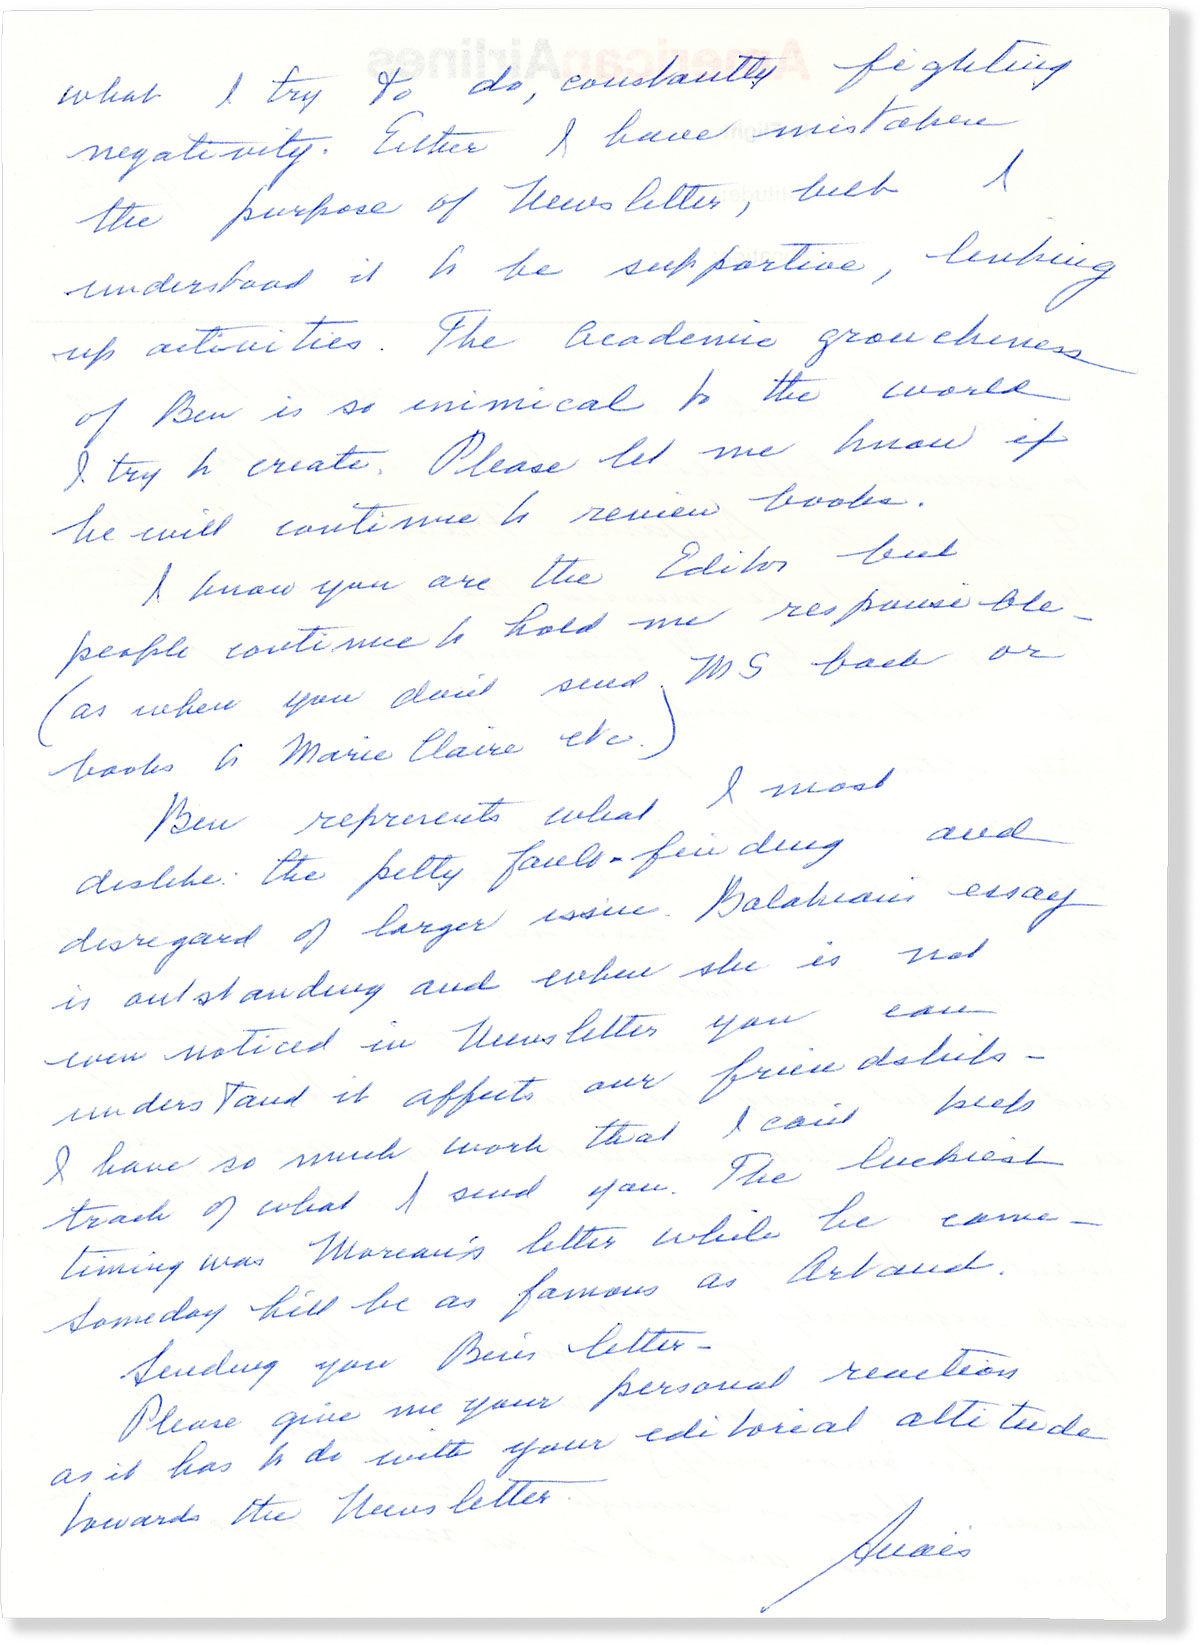 AmericanAirlines
what I try to do, constantly fighting
negativity. Either I have mistaken
the purpose of Newsletter, but I
understood it to be supportive, linking
up activities. The academic grouchiness
of Ben is so inimical to the world
I try to create. Please let me know if
he will continue to review books.
I know you are the Editor but
people continue to hold me responsible –
(as when you don't send MS back or
books to Marie Claire etc.)
Ben represents what I most
dislike: the petty fault-finding and
disregard of larger issue. Balakian's essay
is outstanding and when she is not
even noticed in Newsletter you can
understand it affects our friendships –
I have so much work that I can't keep
track of what I send you. The luckiest
timing was Moreau's letter while he came –
Someday he'll be as famous as Artaud.
Sending you Ben's letter –
Please give me your personal reaction
as it has to do with your editorial attitude
towards the Newsletter.
Anaïs